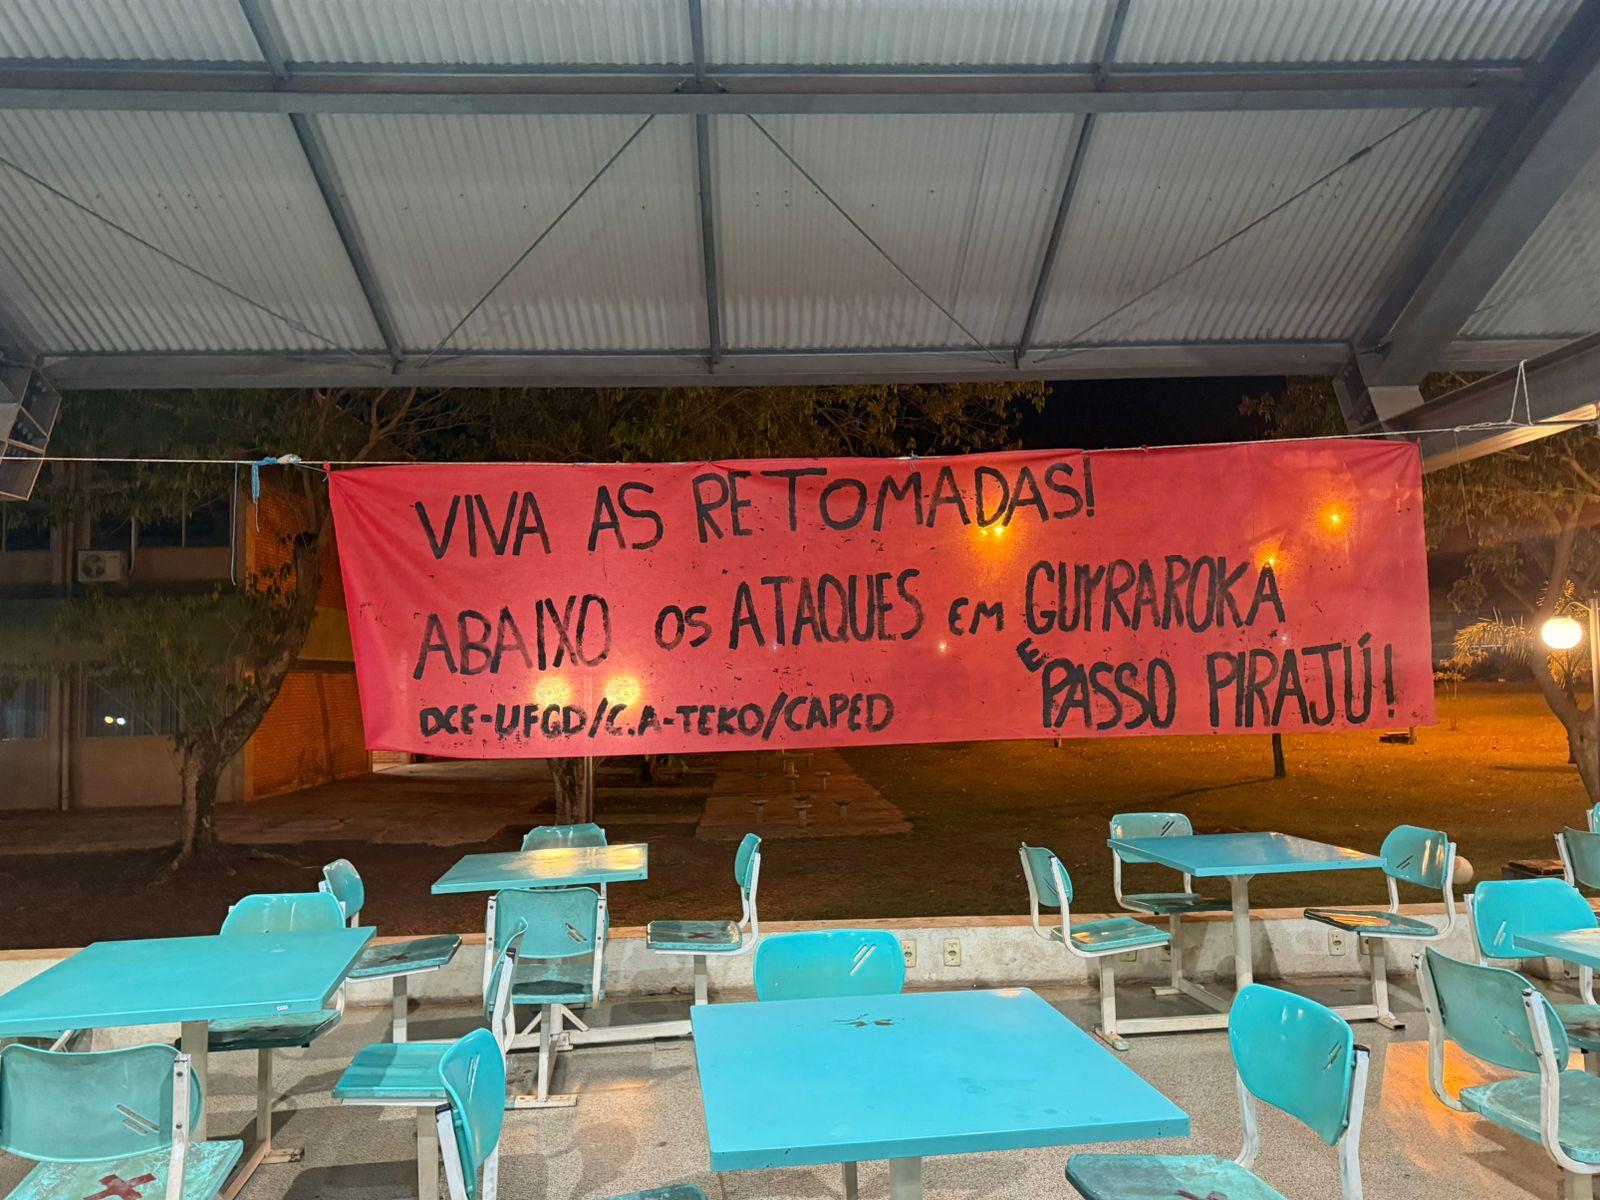 VIVA AS RETOMADAS!
ABAIXO OS ATAQUES EM GUYRAROKA
E PASSO PIRAJÚ!
DCE-UFGD/C.A-TEKO/CAPED